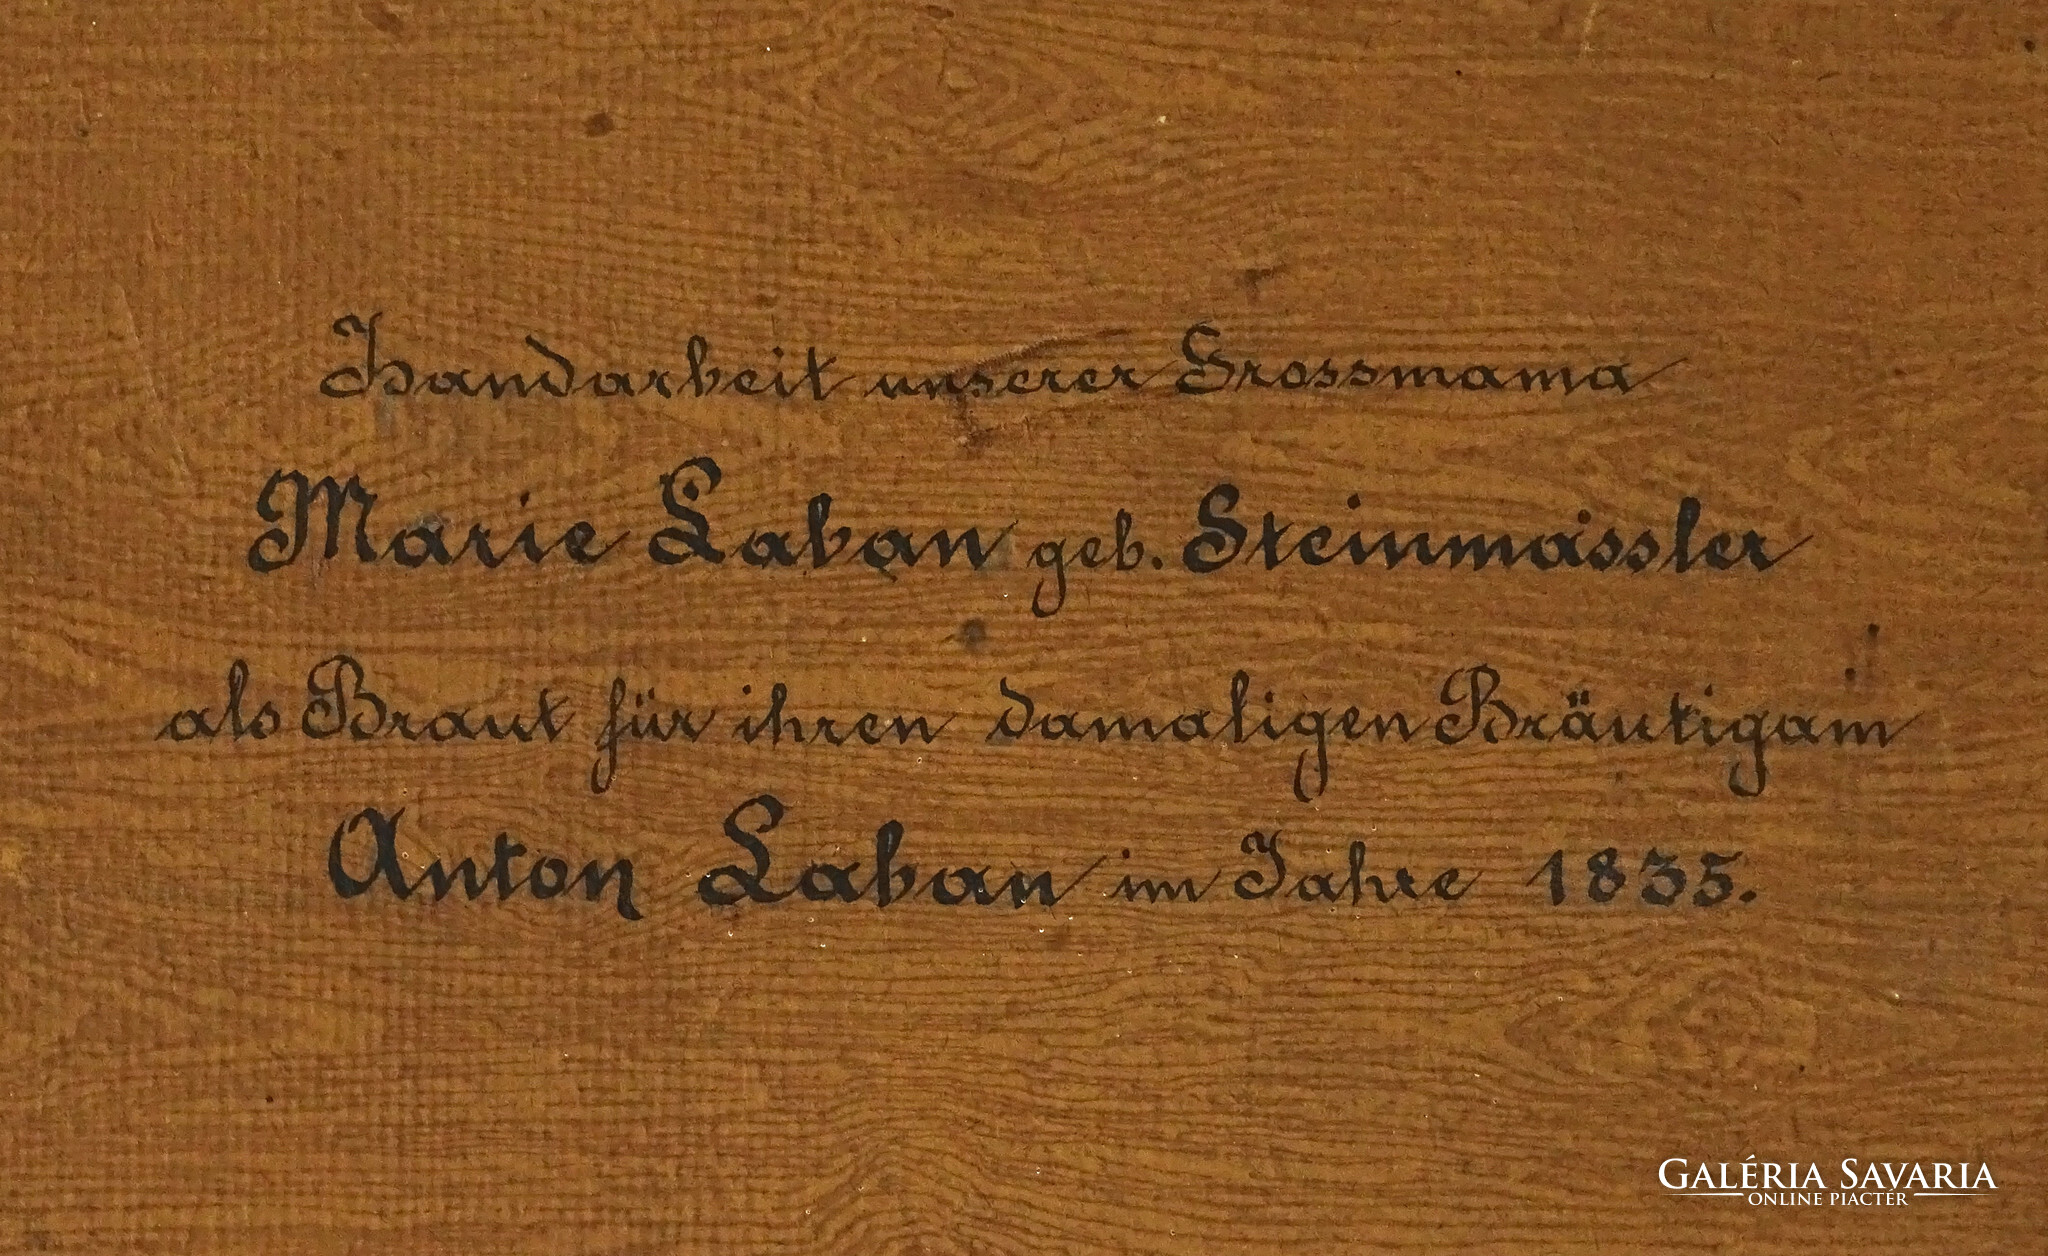 Handarbeit unserer Grossmama
Marie Laban geb. Steinmässler
als Braut für ihren damaligen Bräutigam
Anton Laban im Jahre 1835.
GALÉRIA SAVARIA
ONLINE PIACTÉR